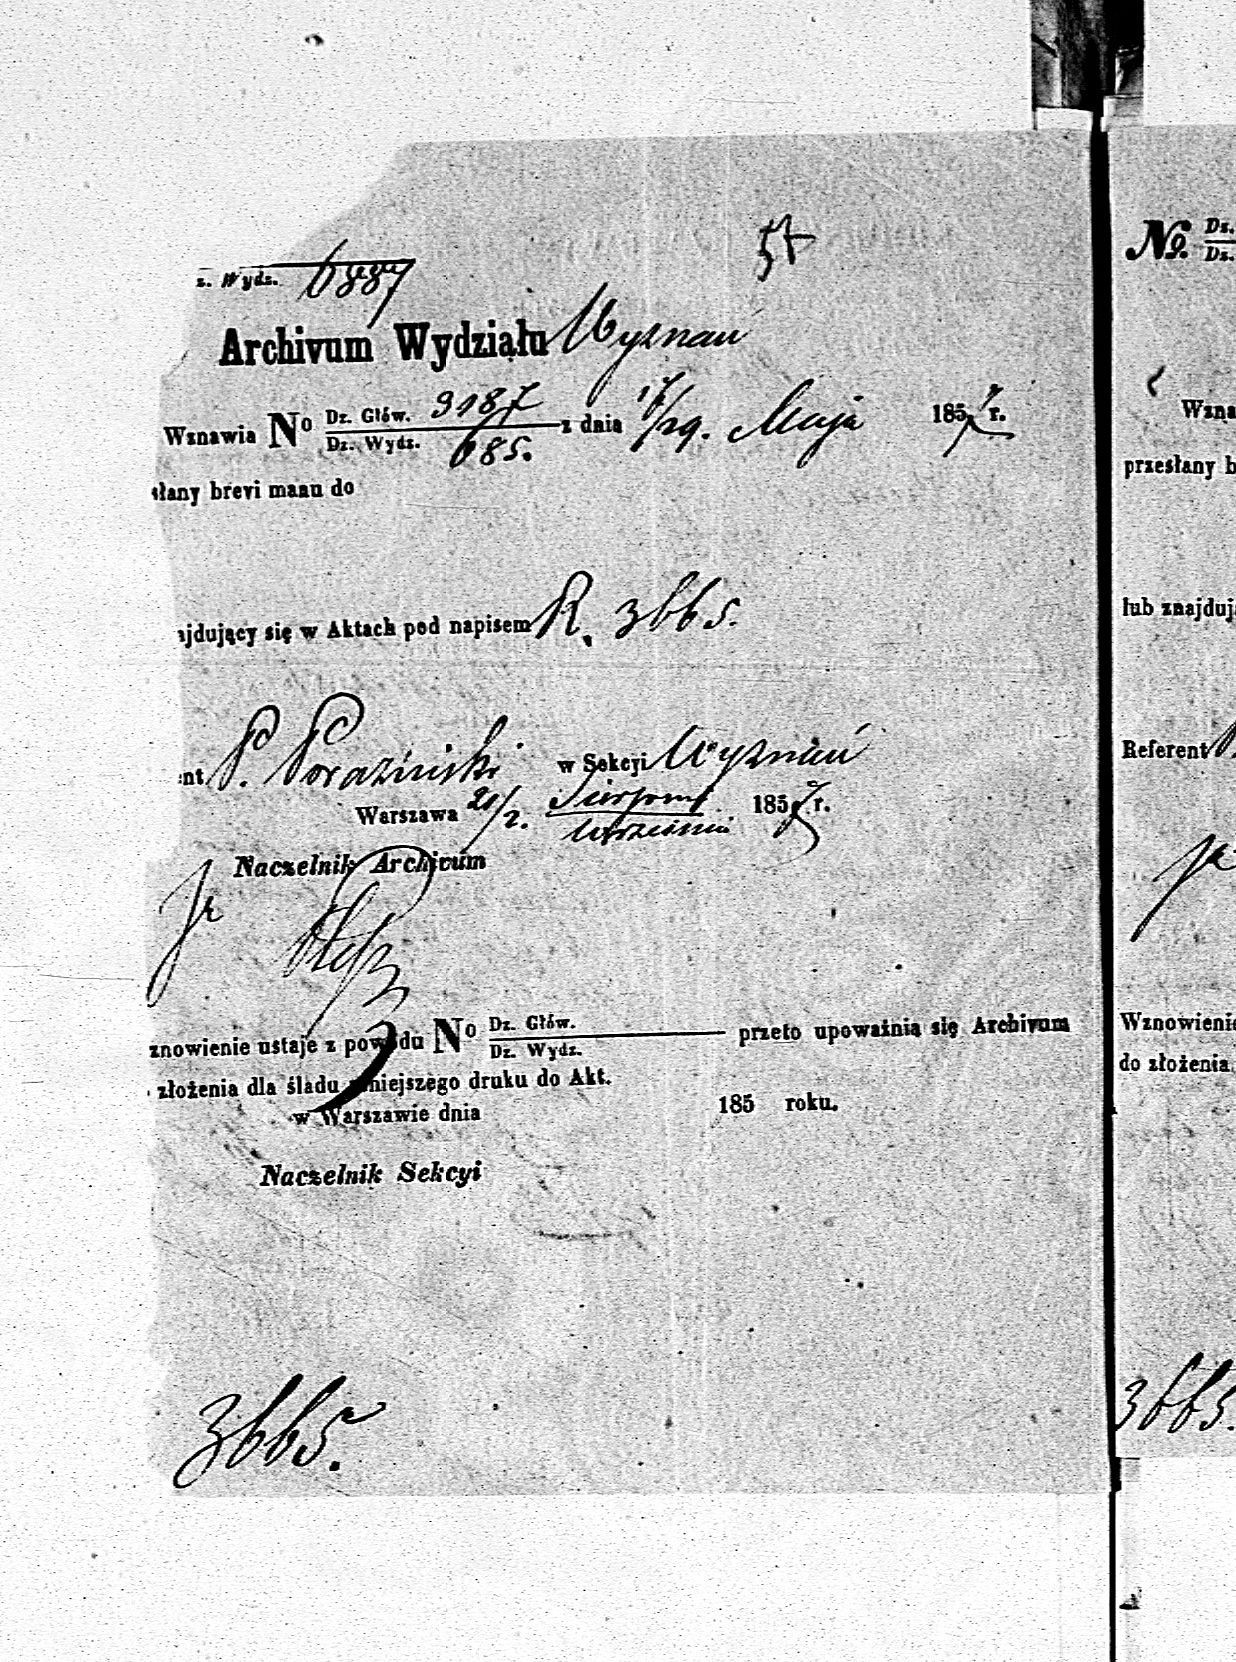 54
z. Wydz. 6887
Archivum Wydziału Wyznań
Wznawia No Dz. Głów. 3187 z dnia 17/29. Maja 1857 r.
Dz. Wydz. 685.
słany brevi manu do
ajdujący się w Aktach pod napisem R. 3665.
ent P. Poraziński w Sekcyi Wyznań
Warszawa 21/2. Sierpnia/Września 1857 r.
Naczelnik Archivum
znowienie ustaje z powodu No Dz. Głów. przeto upoważnia się Archivum
Dz. Wydz.
złożenia dla śladu niniejszego druku do Akt.
w Warszawie dnia 185 roku.
Naczelnik Sekcyi
3665.
No. Dz.
Dz.
Wzna
przesłany b
lub znajduj
Referent P.
Wznowienie
do złożenia
3665.